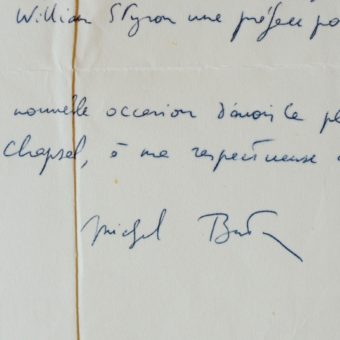 William Styron une préface po
nouvelle occasion d'avoir le pl
Chapsal, à ma respectueuse
Michel Butor